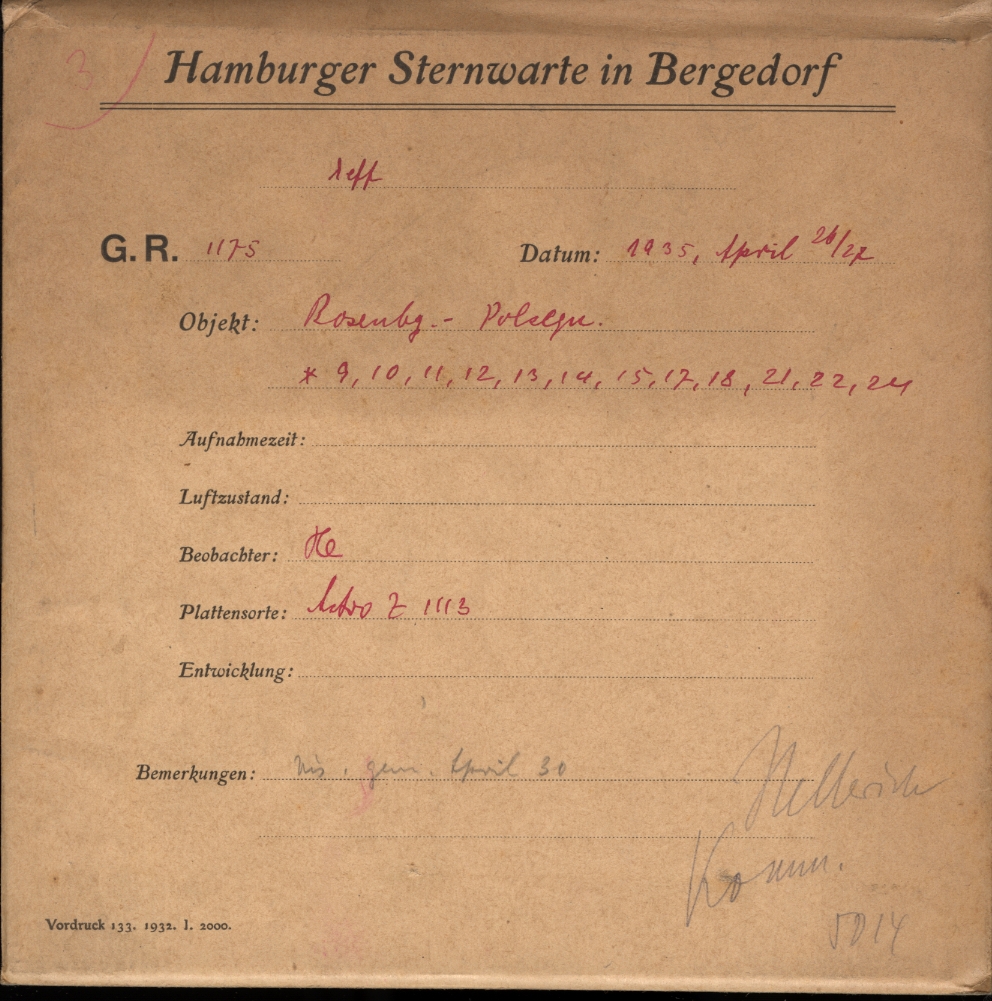 3
Hamburger Sternwarte in Bergedorf
λeff
G. R. 1175 Datum: 1935, April 26/27
Objekt: Rosenbg. - Polsegu.
* 9, 10, 11, 12, 13, 14, 15, 17, 18, 21, 22, 24
Aufnahmezeit:
Luftzustand:
Beobachter: He
Plattensorte: Astro Z 1113
Entwicklung:
Bemerkungen: gem. April 30
Hellerich
Komm.
5014
Vordruck 133. 1932. I. 2000.